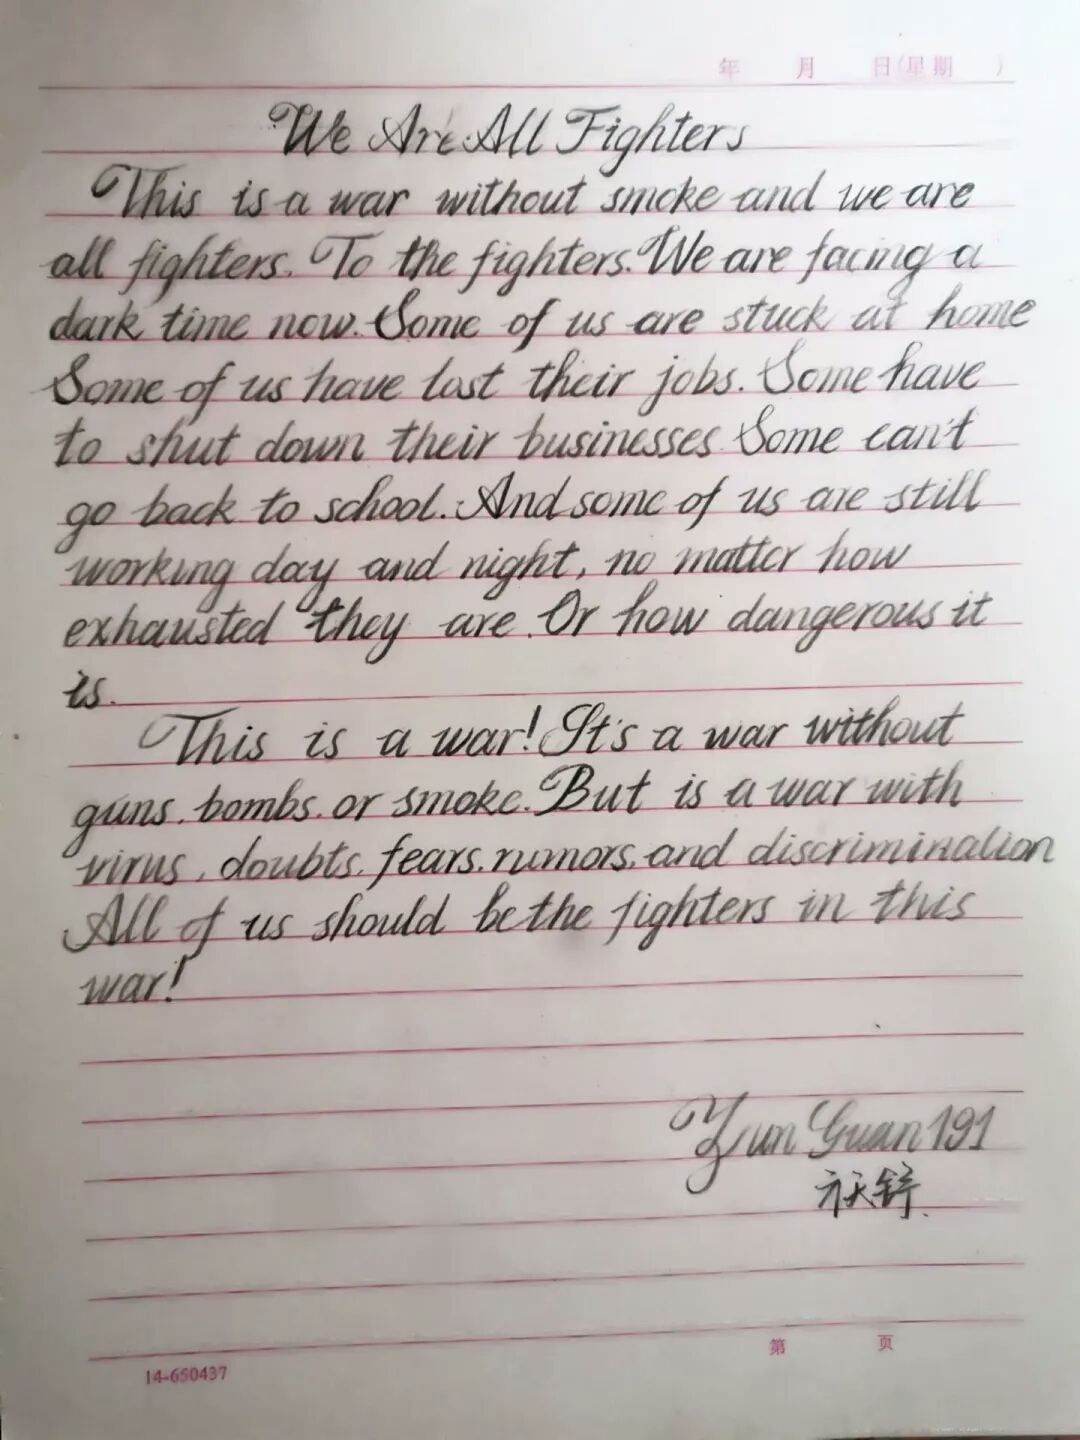 年 月 日(星期 )
We Are All Fighters
This is a war without smoke and we are
all fighters. To the fighters. We are facing a
dark time now. Some of us are stuck at home
Some of us have lost their jobs. Some have
to shut down their businesses Some can't
go back to school. And some of us are still
working day and night, no matter how
exhausted they are. Or how dangerous it
is.
This is a war! It's a war without
guns. bombs. or smoke. But is a war with
virus, doubts. fears. rumors. and discrimination
All of us should be the fighters in this
war!
Yun Guan 191
第 页
14-650437